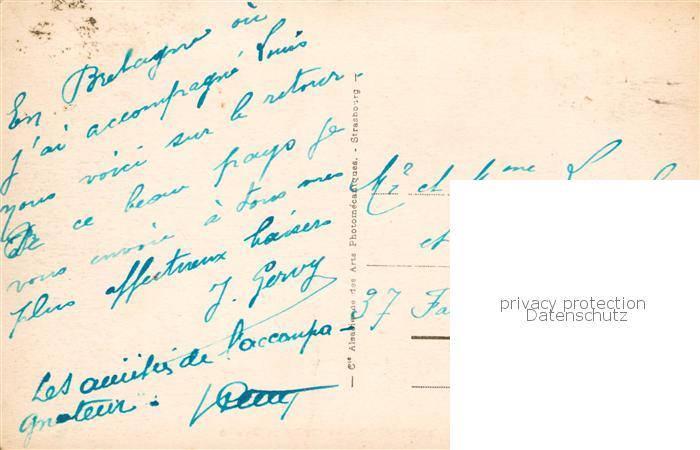 En Bretagne où
j'ai accompagné Louis
nous voici sur le retour.
De ce beau pays je
vous envoie à tous mes
plus affectueux baisers
J. Gervy
Les amitiés de l'accompa-
gnateur.
— Cie Alsacienne des Arts Photomécaniques. - Strasbourg —
Mr et Mme
et
37 Fa
privacy protection
Datenschutz